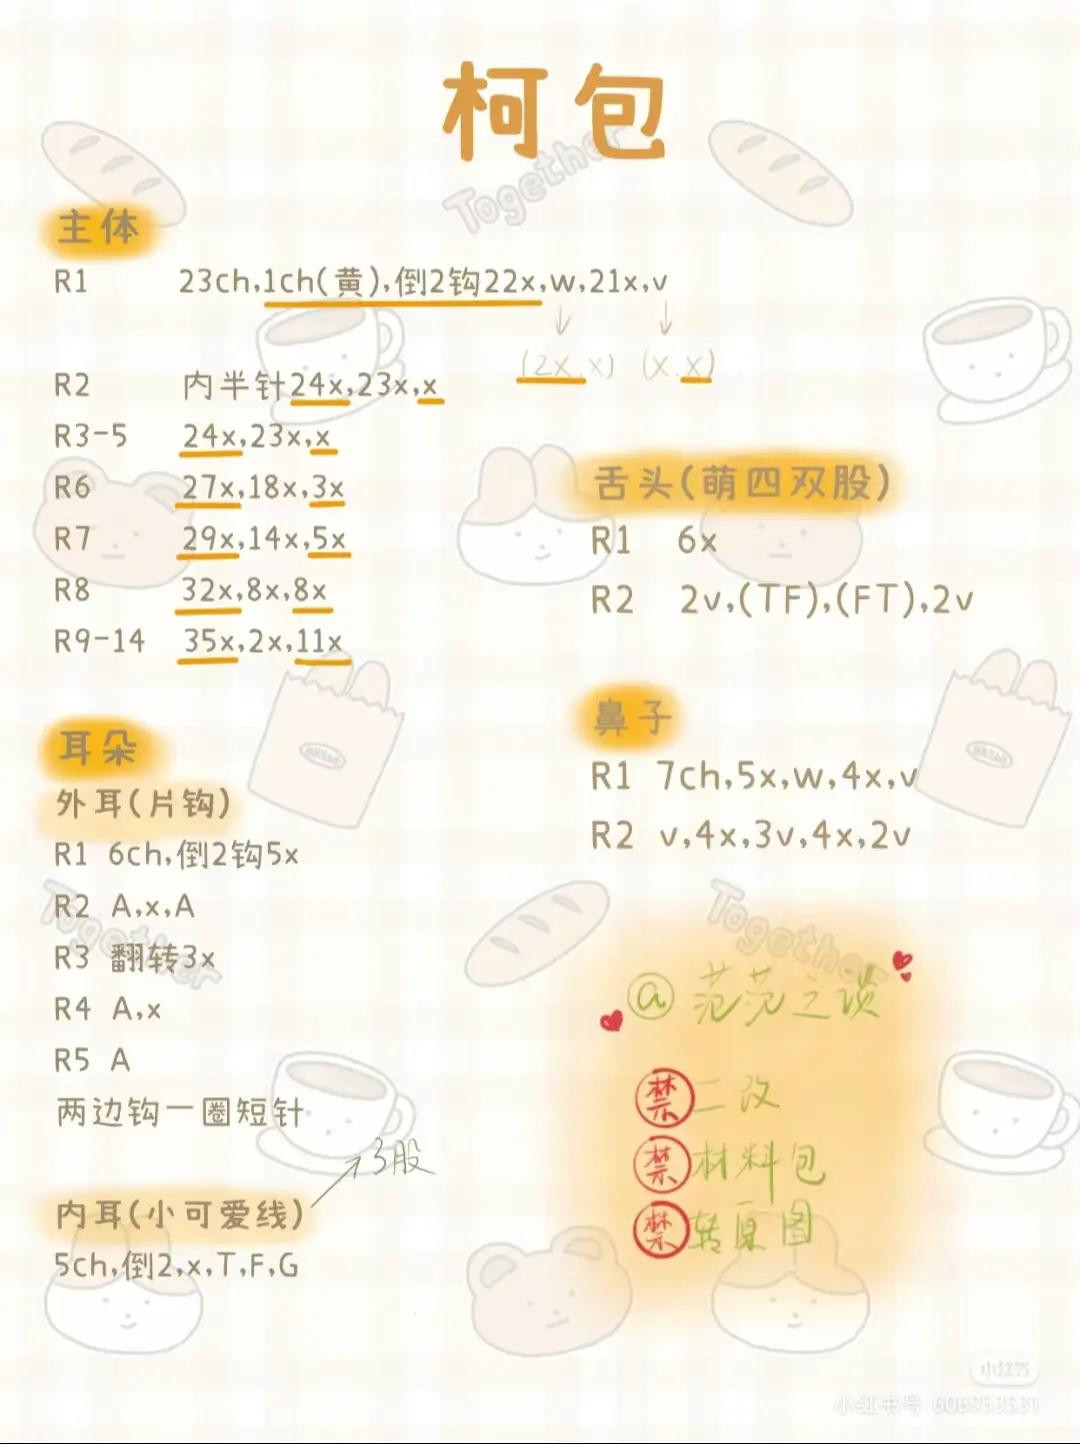 柯包
Together
主体
R1 23ch,1ch(黄),倒2钩22x,w,21x,v
(2x,x) (x,x)
R2 内半针24x,23x,x
R3-5 24x,23x,x
R6 27x,18x,3x
R7 29x,14x,5x
R8 32x,8x,8x
R9-14 35x,2x,11x
舌头(萌四双股)
R1 6x
R2 2v,(TF),(FT),2v
鼻子
R1 7ch,5x,w,4x,v
R2 v,4x,3v,4x,2v
耳朵
外耳(片钩)
R1 6ch,倒2钩5x
R2 A,x,A
R3 翻转3x
R4 A,x
R5 A
两边钩一圈短针
3股
内耳(小可爱线)
5ch,倒2,x,T,F,G
Together
Together
@范范之谈
禁二改
禁材料包
禁转原图
小红书
小红书号:606953531